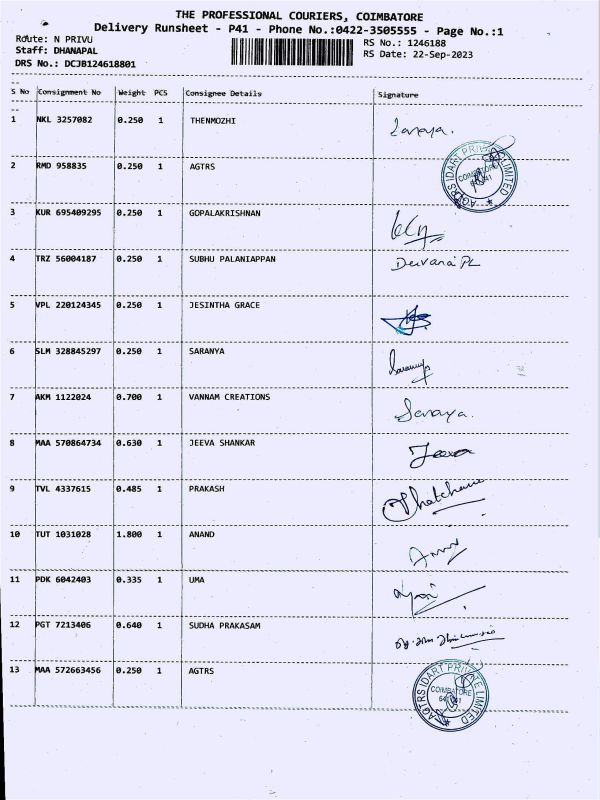 THE PROFESSIONAL COURIERS, COIMBATORE
Delivery Runsheet - P41 - Phone No.:0422-3505555 - Page No.:1
Route: N PRIVU
RS No.: 1246188
Staff: DHANAPAL
RS Date: 22-Sep-2023
DRS No.: DCJB124618801
S No Consignment No Weight PCS Consignee Details Signature
1 NKL 3257082 0.250 1 THENMOZHI
2 RMD 958835 0.250 1 AGTRS
AGTRS IDART PRIVATE LIMITED COIMBATORE
3 KUR 695409295 0.250 1 GOPALAKRISHNAN
4 TRZ 56004187 0.250 1 SUBHU PALANIAPPAN
5 VPL 220124345 0.250 1 JESINTHA GRACE
6 SLM 328845297 0.250 1 SARANYA Saranya
7 AKM 1122024 0.700 1 VANNAM CREATIONS
8 MAA 570864734 0.630 1 JEEVA SHANKAR Jeeva
9 TVL 4337615 0.485 1 PRAKASH
10 TUT 1031028 1.800 1 ANAND
11 PDK 6042403 0.335 1 UMA
12 PGT 7213406 0.640 1 SUDHA PRAKASAM
13 MAA 572663456 0.250 1 AGTRS
AGTRS IDART PRIVATE LIMITED COIMBATORE